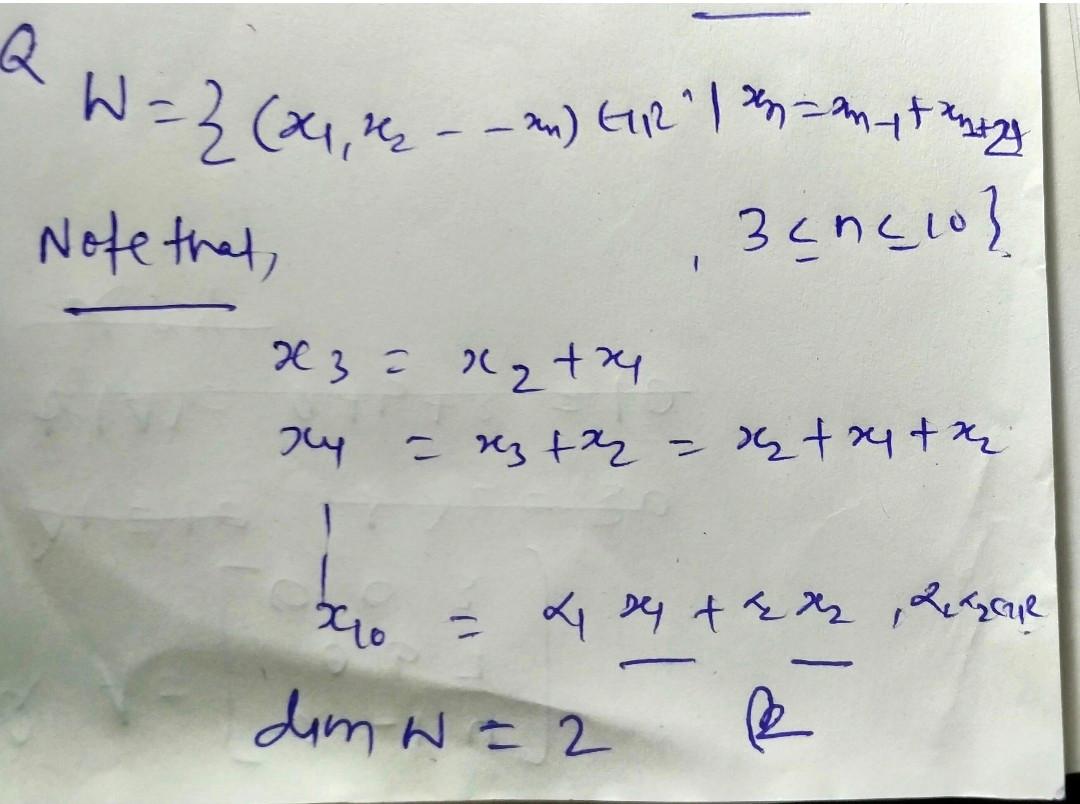 Q
W = { (x₁, x₂ - - xₙ) ∈ ℝⁿ | xₙ = xₙ₋₁ +
, 3 ≤ n ≤ 10 }
Note that,
x₃ = x₂ + x₁
x₄ = x₃ + x₂ = x₂ + x₁ + x₂
x₁₀ = α₁ x₁ + α₂ x₂ , α₁, α₂ ∈ ℝ
dim W = 2